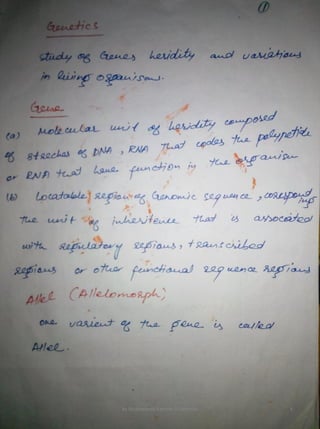 ①
Genetics
study og Genes heridity and variations
in living organisms.
Gene
(a) Molecular unit of heridity composed
of streches of DNA, RNA That codes the polypetide
or RNA that have function in the organism
(b) Locatable region of Genomic sequence, coresponding
The unit of inheritence that is associated
with regulatory regions, transcribed
regions or other functional sequence regions
Allel (Allelomorph)
one varient of the gene is called
Allel.